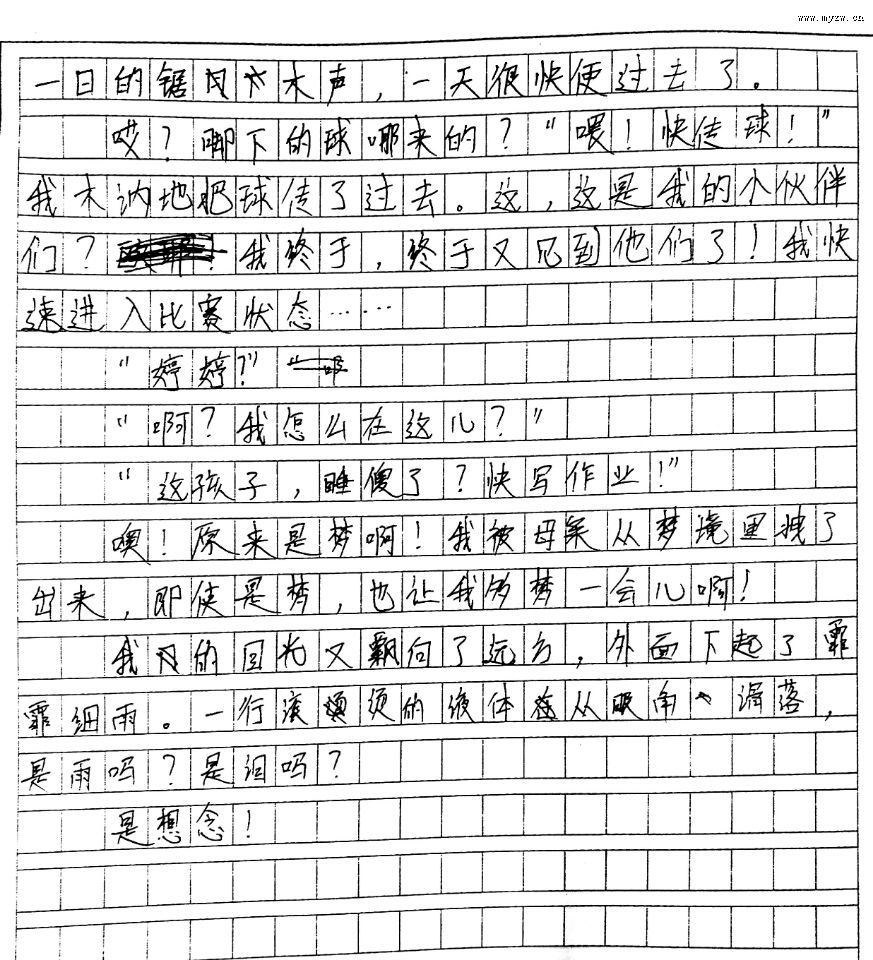 www.myzw.cn
一日的锯木声，一天很快便过去了。
哎？脚下的球哪来的？“喂！快传球！”
我木讷地把球传了过去。这，这是我的小伙伴
们？我终于，终于又见到他们了！我快
速进入比赛状态……
“婷婷？”
“啊？我怎么在这儿？”
“这孩子，睡傻了？快写作业！”
噢！原来是梦啊！我被母亲从梦境里拽了
出来，即使是梦，也让我多梦一会儿啊！
我的目光又飘向了远方，外面下起了霏
霏细雨。一行滚烫的液体从眼角滑落，
是雨吗？是泪吗？
是想念！